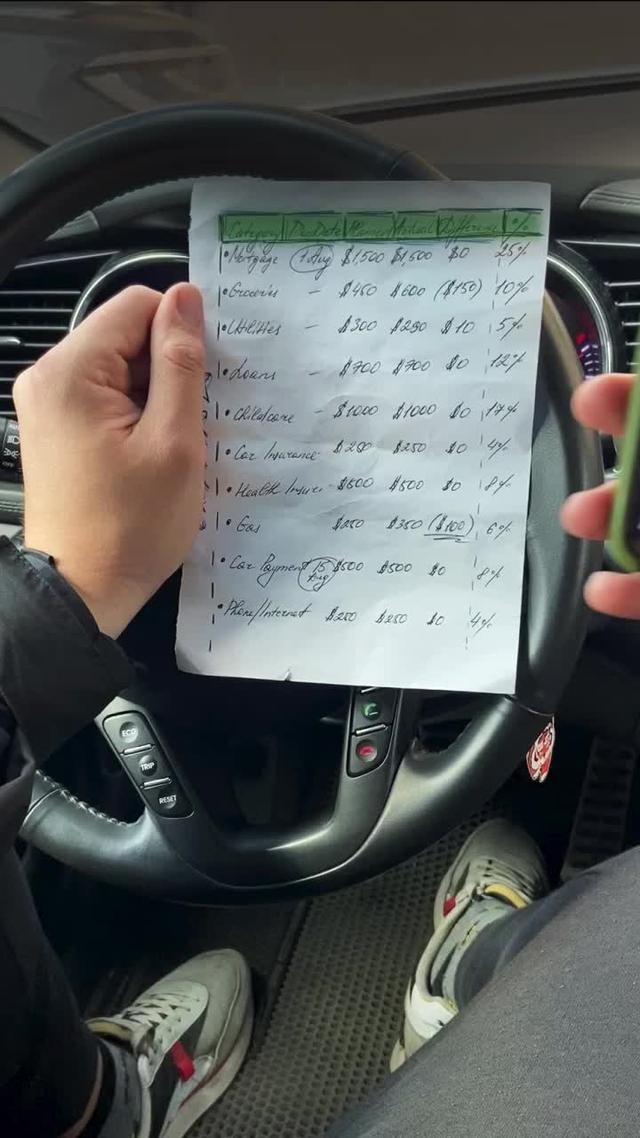 Category Du Date Planned Actual Difference %
• Mortgage 1 Aug $1,500 $1,500 $0 25%
• Groceries - $450 $600 ($150) 10%
• Utilities - $300 $290 $10 5%
• Loans - $700 $700 $0 12%
• Childcare - $1000 $1000 $0 17%
• Car Insurance - $250 $250 $0 4%
• Health Insur. - $500 $500 $0 8%
• Gas $250 $350 ($100) 6%
• Car Payment 15 Aug $500 $500 $0 8%
• Phone/Internet $250 $250 $0 4%
ECO
TRIP
RESET